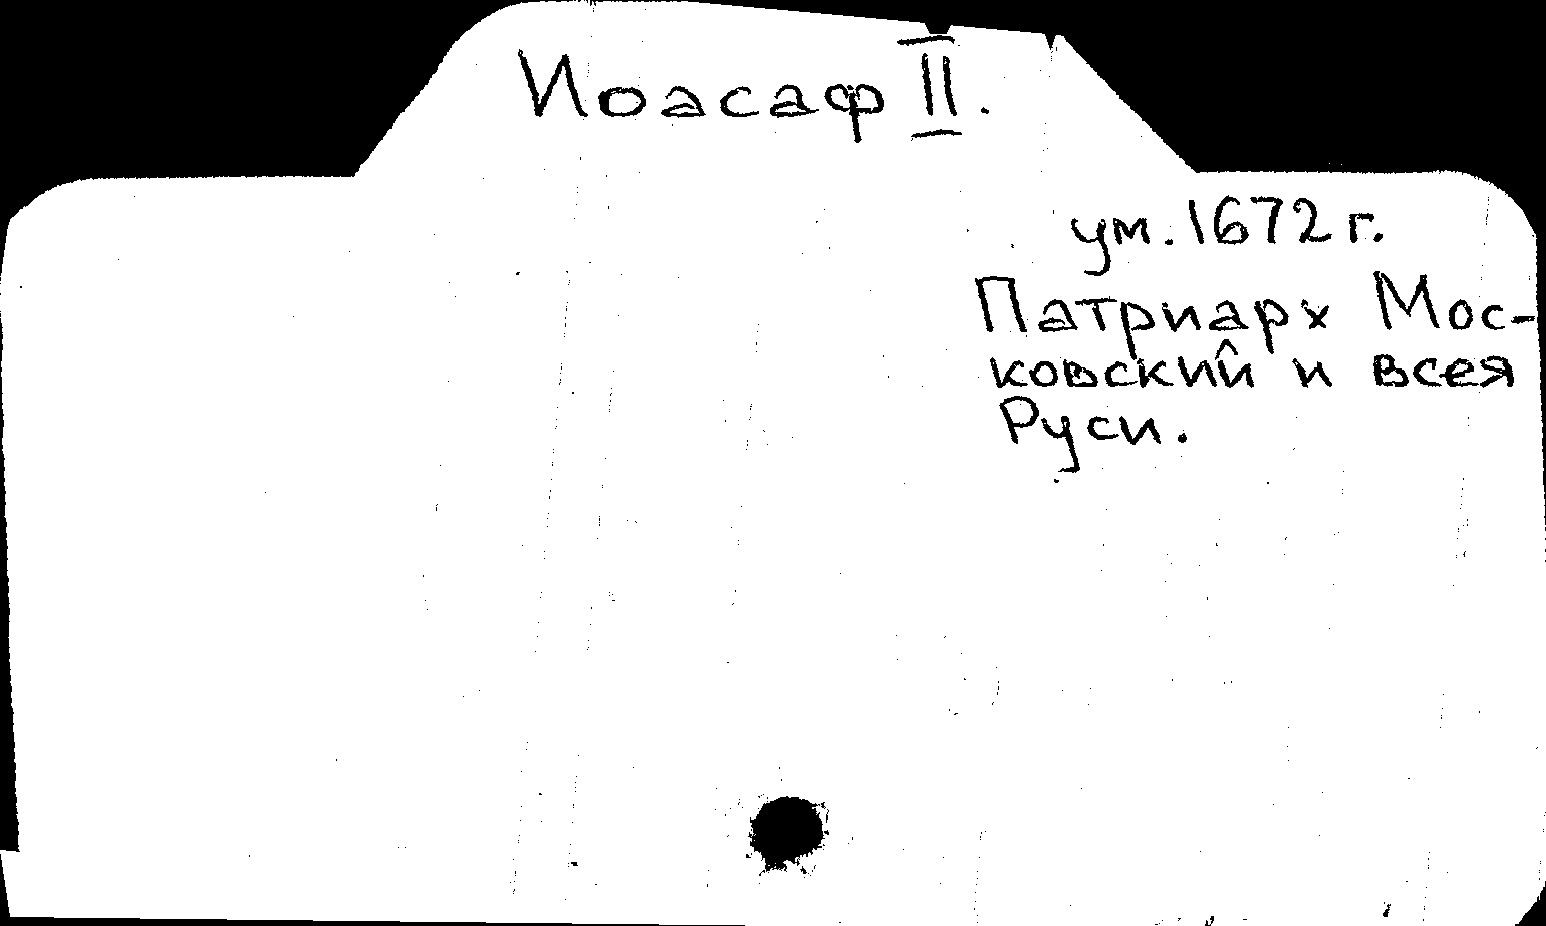 Иоасаф II.
ум. 1672 г.
Патриарх Мос-
ковский и всея
Руси.